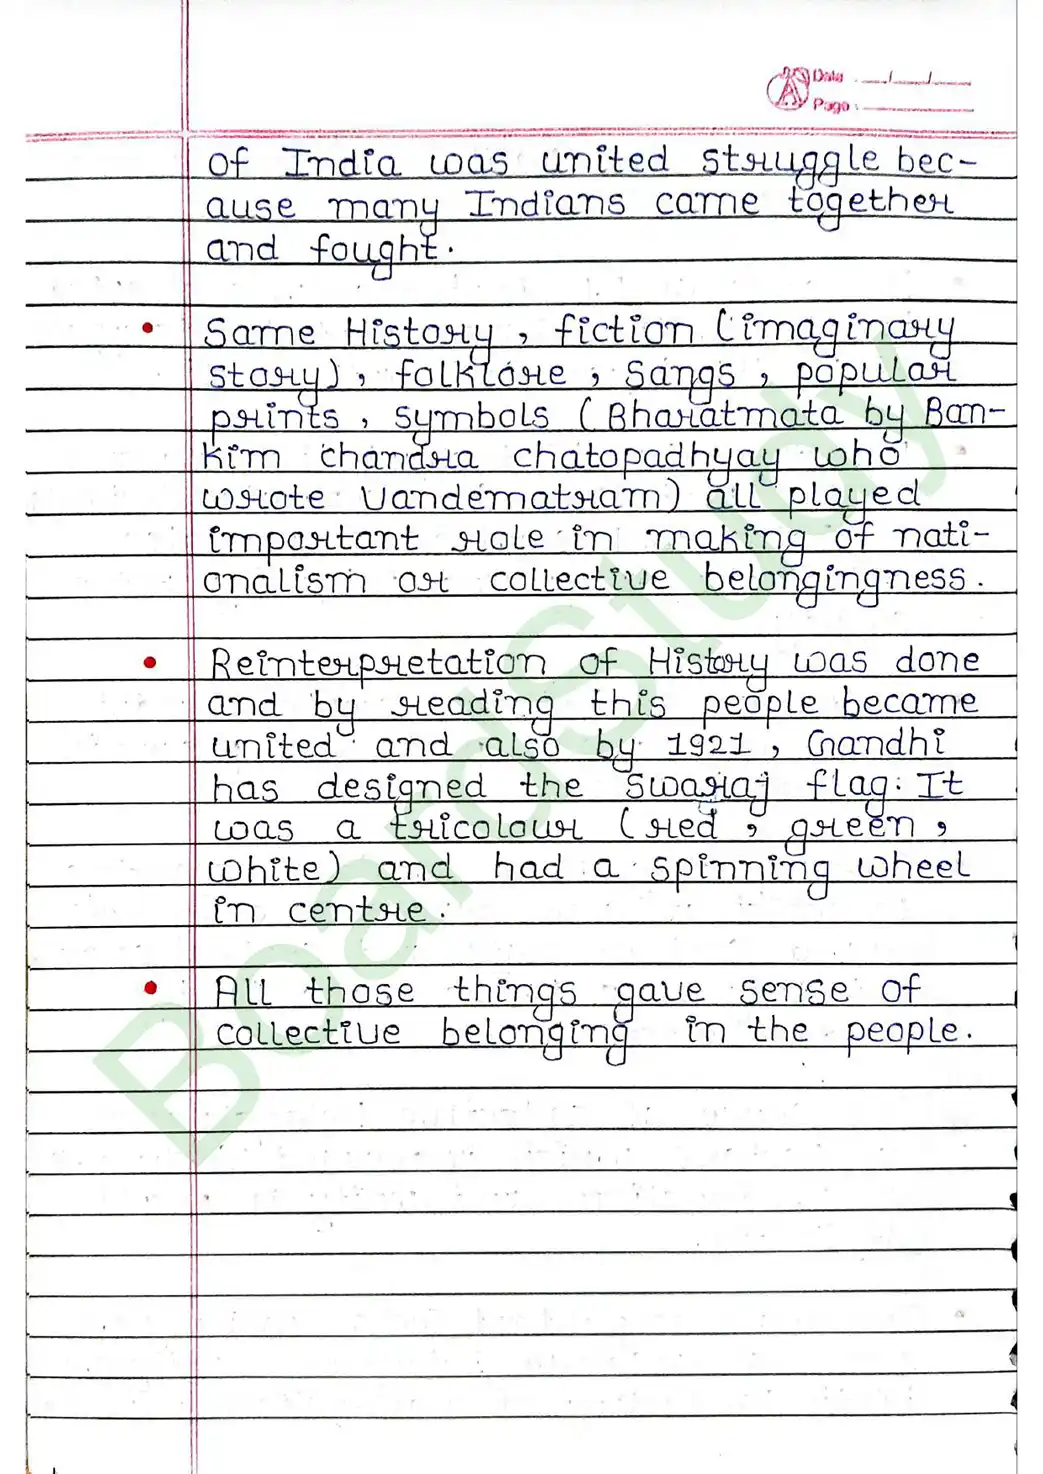 Date : __/__/__
Page :
of India was united struggle bec-
ause many Indians came together
and fought.
Same History, fiction (imaginary
story), folklore, Songs, popular
prints, symbols (Bharatmata by Ban-
kim chandra chatopadhyay who
wrote Vandematram) all played
important role in making of nati-
onalism or collective belongingness.
Reinterpretation of History was done
and by reading this people became
united and also by 1921, Gandhi
has designed the swaraj flag. It
was a tricolour (red, green,
white) and had a spinning wheel
in centre.
All those things gave sense of
collective belonging in the people.
BoardStudy